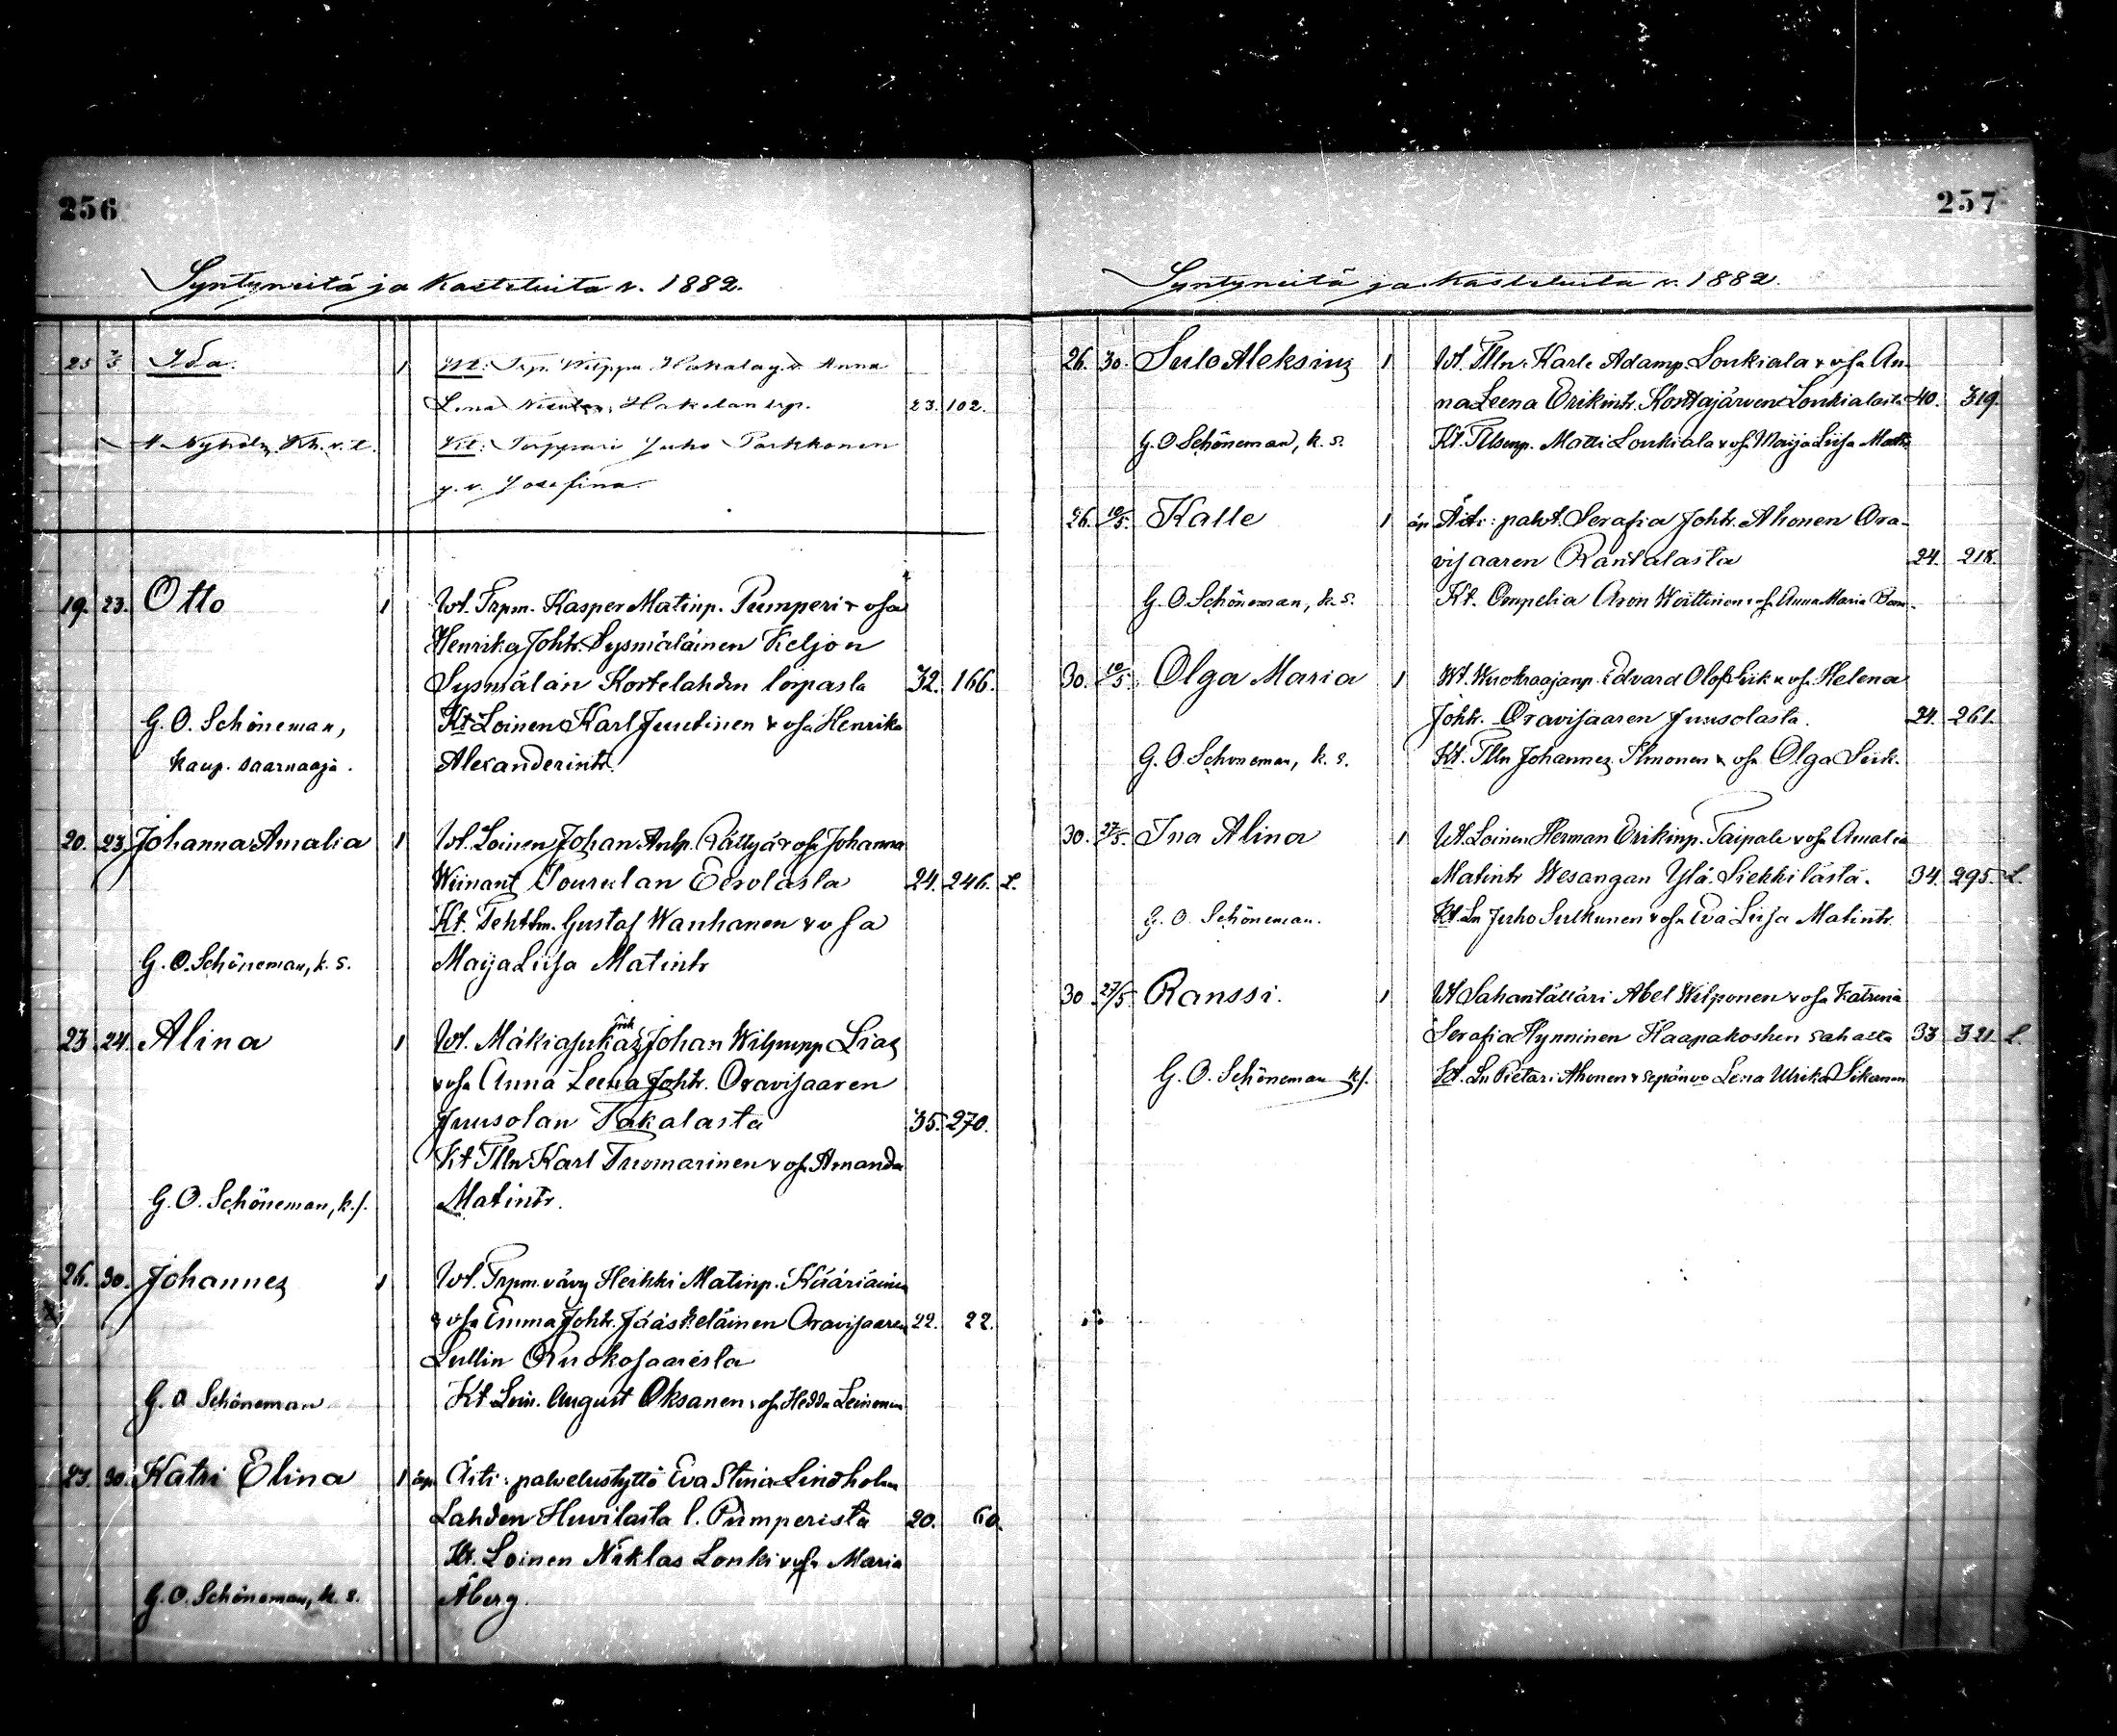 256
Syntyneitä ja Kastetuita v. 1882.
25 7/5 Ida. 1 Wt: Trp. Wilppu Hakala y. v. Anna
Lena Hakalan trp. 23. 102.
Nyholm, Kh. v. t. Kt: Torppari Juho Parkkonen
y. v. Josefina.
19. 23. Otto 1 Wt. Trpm. Kasper Matinp. Pumperi & vsa
Henrika Johtr. Sysmäläinen Keljon
Sysmälän Kortelahden torpasta 32. 166.
G. O. Schöneman, Kt. Loinen Karl Juutinen & vsa Henrika
kaup. saarnaaja. Alexanderintr.
20. 23. Johanna Amalia 1 Wt. Loinen Johan Antp. Rättyä & vsa Johanna
Wiinant Tourulan Eerolasta 24. 246. L.
Kt. Tehtm. Gustaf Wanhanen & vsa
G. O. Schöneman, k. s. Maija Liisa Matintr
23. 24. Alina 1 Wt. Mäkiasukas Johan Wilpunp Lias
& vsa Anna Leena Johtr. Oravisaaren
Juusolan Takalasta 35. 270.
Kt Tlln Karl Tuomarinen & vsa Amanda
G. O. Schöneman, k. s. Matintr.
26. 30. Johannes 1 Wt. Trpm. vävy Heikki Matinp. Kääriäinen
& vsa Emma Johtr. Jääskeläinen Oravisaaren 22. 22.
Lullin Ruokosaaresta
G. O Schöneman Kt Loin. August Oksanen & vsa Hedda Leinonen
27. 30. Katri Elina 1 äp Äiti: palvelustyttö Eva Stina Lindholm
Lahden Huvilasta l. Pumperista 20. 60.
Kt. Loinen Niklas Lonki & vsa Maria
G. O. Schöneman, k. s. Åberg.
257
Syntyneitä ja Kastetuita v. 1882.
26. 30. Sulo Aleksius 1 Wt. Tlln. Karle Adamp. Loukiala & vsa An-
na Leena Erikintr. Kostajärven Loukialasta 40. 319.
G. O Schöneman, k. s. Kt. Matti Loukiala & vsa Maija Liisa Matti
26. 10/5. Kalle 1 äp Äiti: palvt. Serafia Johtr. Ahonen Ora-
visaaren Rantalasta 24. 218.
G. O Schöneman, k. s. Kt. Ompelia Aron Woittinen & vsa Anna Maria
30. 10/5. Olga Maria 1 Wt. Wuokraajanp. Edvard Olof Siik & vsa Helena
Johtr. Oravisaaren Juusolasta. 24. 261.
G. O Schöneman, k. s. Kt. Tlln Johannes Ilmonen & vsa Olga Siik.
30. 27/5. Ina Alina 1 Wt. Loinen Herman Erikinp. Taipale & vsa Amalia
Matintr Wesangan Ylä-Siekkilästä. 34. 295. L.
G. O. Schöneman. Kt. Ln Juho Sulkunen & vsa Eva Liisa Matintr.
30. 27/5. Ranssi. 1 Wt Sahantälläri Abel Wilponen & vsa Katrina
Serafia Hynninen Haapakosken sahalta 33 321. L.
G. O. Schöneman k. s. Kt. Ln Pietari Ahonen & sepänvo Lena Ulrika Sikanen